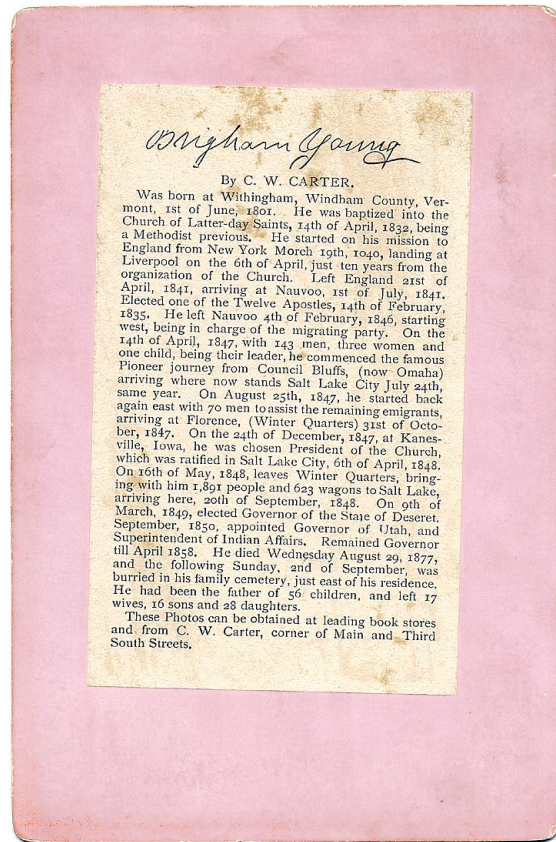 Brigham Young
By C. W. CARTER.
Was born at Withingham, Windham County, Ver-
mont, 1st of June, 1801. He was baptized into the
Church of Latter-day Saints, 14th of April, 1832, being
a Methodist previous. He started on his mission to
England from New York Morch 19th, 1040, landing at
Liverpool on the 6th of April, just ten years from the
organization of the Church. Left England 21st of
April, 1841, arriving at Nauvoo, 1st of July, 1841.
Elected one of the Twelve Apostles, 14th of February,
1835. He left Nauvoo 4th of February, 1846, starting
west, being in charge of the migrating party. On the
14th of April, 1847, with 143 men, three women and
one child, being their leader, he commenced the famous
Pioneer journey from Council Bluffs, (now Omaha)
arriving where now stands Salt Lake City July 24th,
same year. On August 25th, 1847, he started back
again east with 70 men to assist the remaining emigrants,
arriving at Florence, (Winter Quarters) 31st of Octo-
ber, 1847. On the 24th of December, 1847, at Kanes-
ville, Iowa, he was chosen President of the Church,
which was ratified in Salt Lake City, 6th of April, 1848.
On 16th of May, 1848, leaves Winter Quarters, bring-
ing with him 1,891 people and 623 wagons to Salt Lake,
arriving here, 20th of September, 1848. On 9th of
March, 1849, elected Governor of the State of Deseret.
September, 1850, appointed Governor of Utah, and
Superintendent of Indian Affairs. Remained Governor
till April 1858. He died Wednesday August 29, 1877,
and the following Sunday, 2nd of September, was
burried in his family cemetery, just east of his residence.
He had been the father of 56 children, and left 17
wives, 16 sons and 28 daughters.
These Photos can be obtained at leading book stores
and from C. W. Carter, corner of Main and Third
South Streets.